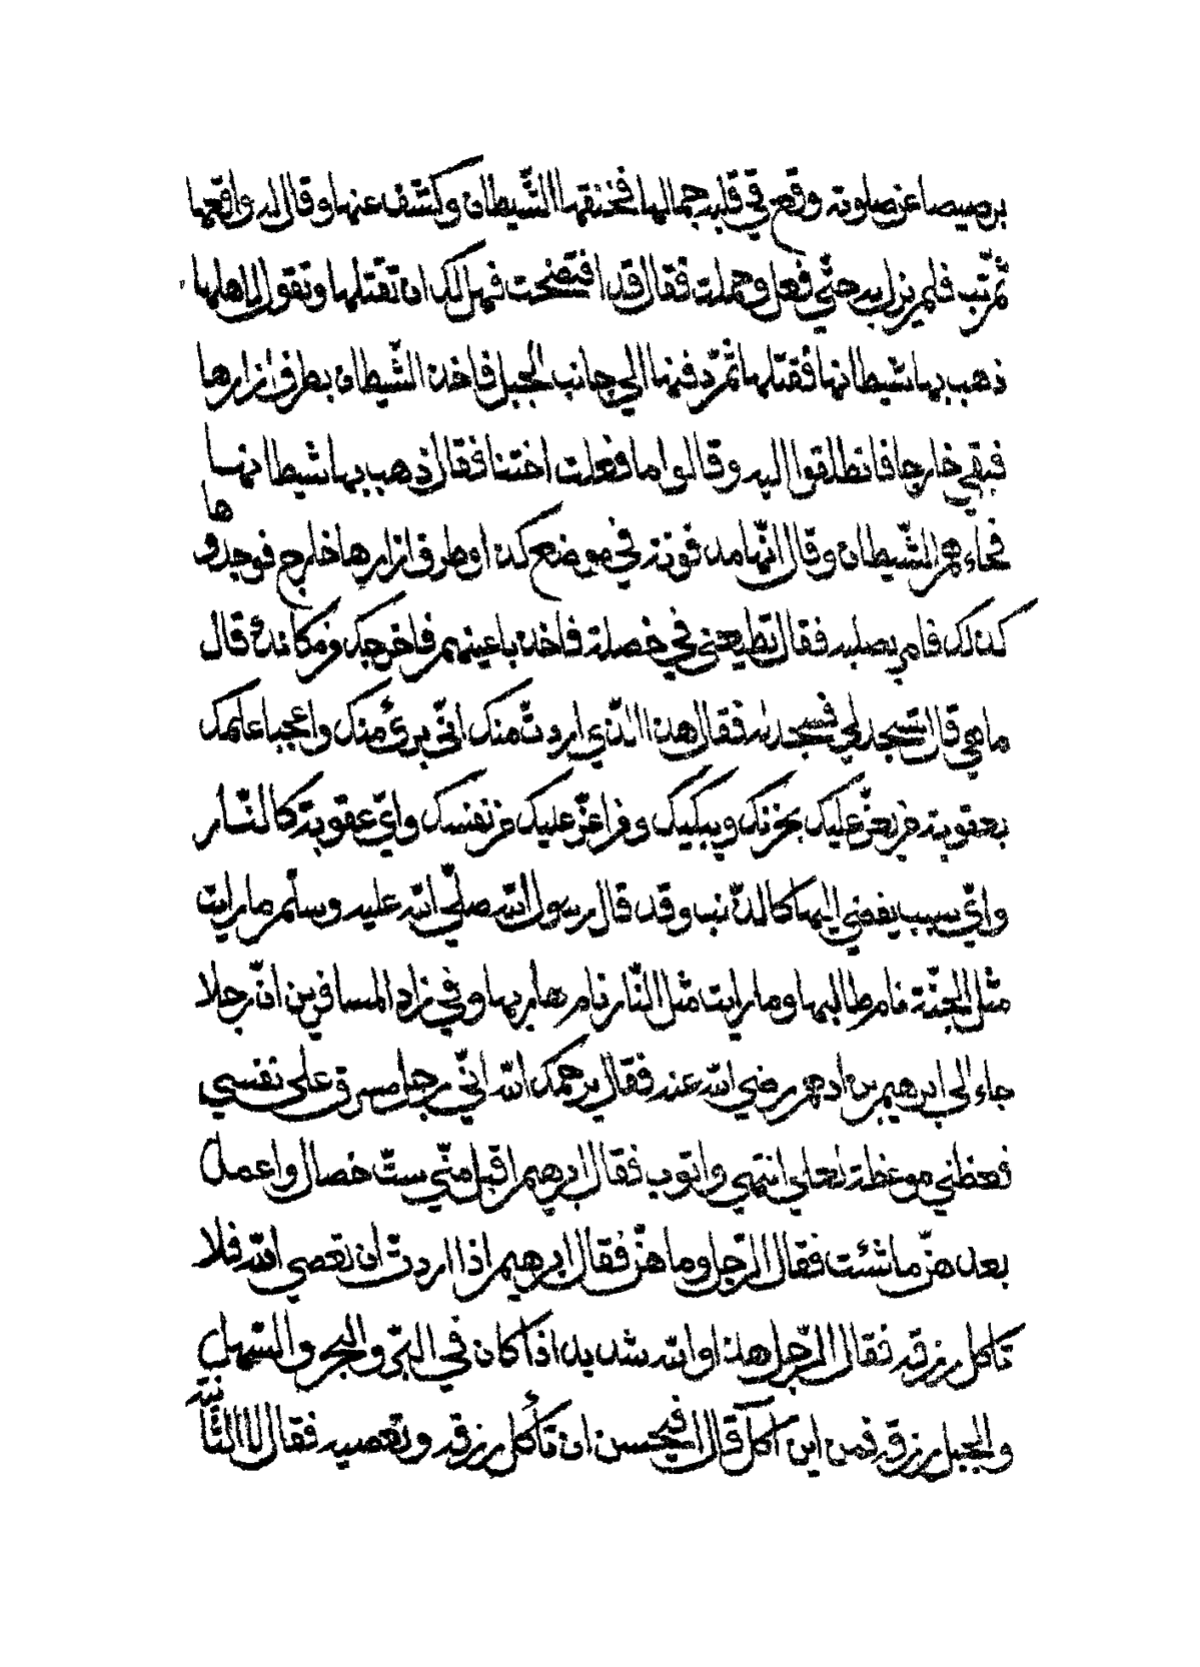 برصيصا عن صلوته وقع في قلبه جمالها فخنقها الشّيطان وكشف عنها وقال له واقعها
ثمّ تب فلم يزل به حتّي فعل وحملت فقال قد افتضحت فهل لك ان تقتلها وتقول لاهلها
ذهب بها شيطانها فقتلها ثمّ دفنها الي جانب الجبل فاخذ الشّيطان بطرف ازارها
فبقي خارجا فانطلقوا اليه وقالوا ما فعلت اختنا فقال ذهب بها شيطانها
فجاءهم الشّيطان وقال انّها مدفونة في موضع كذا وطرف ازارها خارج فوجدوها
كذلك فامر بصلبه فقال تطيعني في خصلة فاخذ باعينهم فاخرجك من مكانك قال
ما هي قال تسجد لي فسجد له فقال هذا الّذي اردتّ منك انّي برئ منك واعجبا علمك
بعقوبته فمن يعزّ عليك بحزنك ويبكيك ومن اعزّ عليك من نفسك وايّ عقوبة كالنّار
وايّ سبب يفضي اليها كالذّنب وقد قال رسول الله صلّي الله عليه وسلّم ما رايت
مثل الجنّة نام طالبها وما رايت مثل النّار نام هاربها وفي زاد المسافرين انّ رجلا
جاء الي ابرهيم بن ادهم رضي الله عنه فقال يرحمك الله انّي رجل مسرف علي نفسي
فعظني موعظة لعلي انتهي واتوب فقال ابرهيم اقبل منّي ستّ خصال واعمل
بعد هنّ ما شئت فقال الرّجل وما هنّ فقال ابرهيم اذا اردتّ ان تعصي الله فلا
تاكل رزقه فقال الرّجل هذا والله شديد اذا كان في البرّ والبحر والسّهل
والجبل رزقه فمن اين آكل قال افيحسن ان تأكل رزقه وتعصيه فقال لا الثّانية